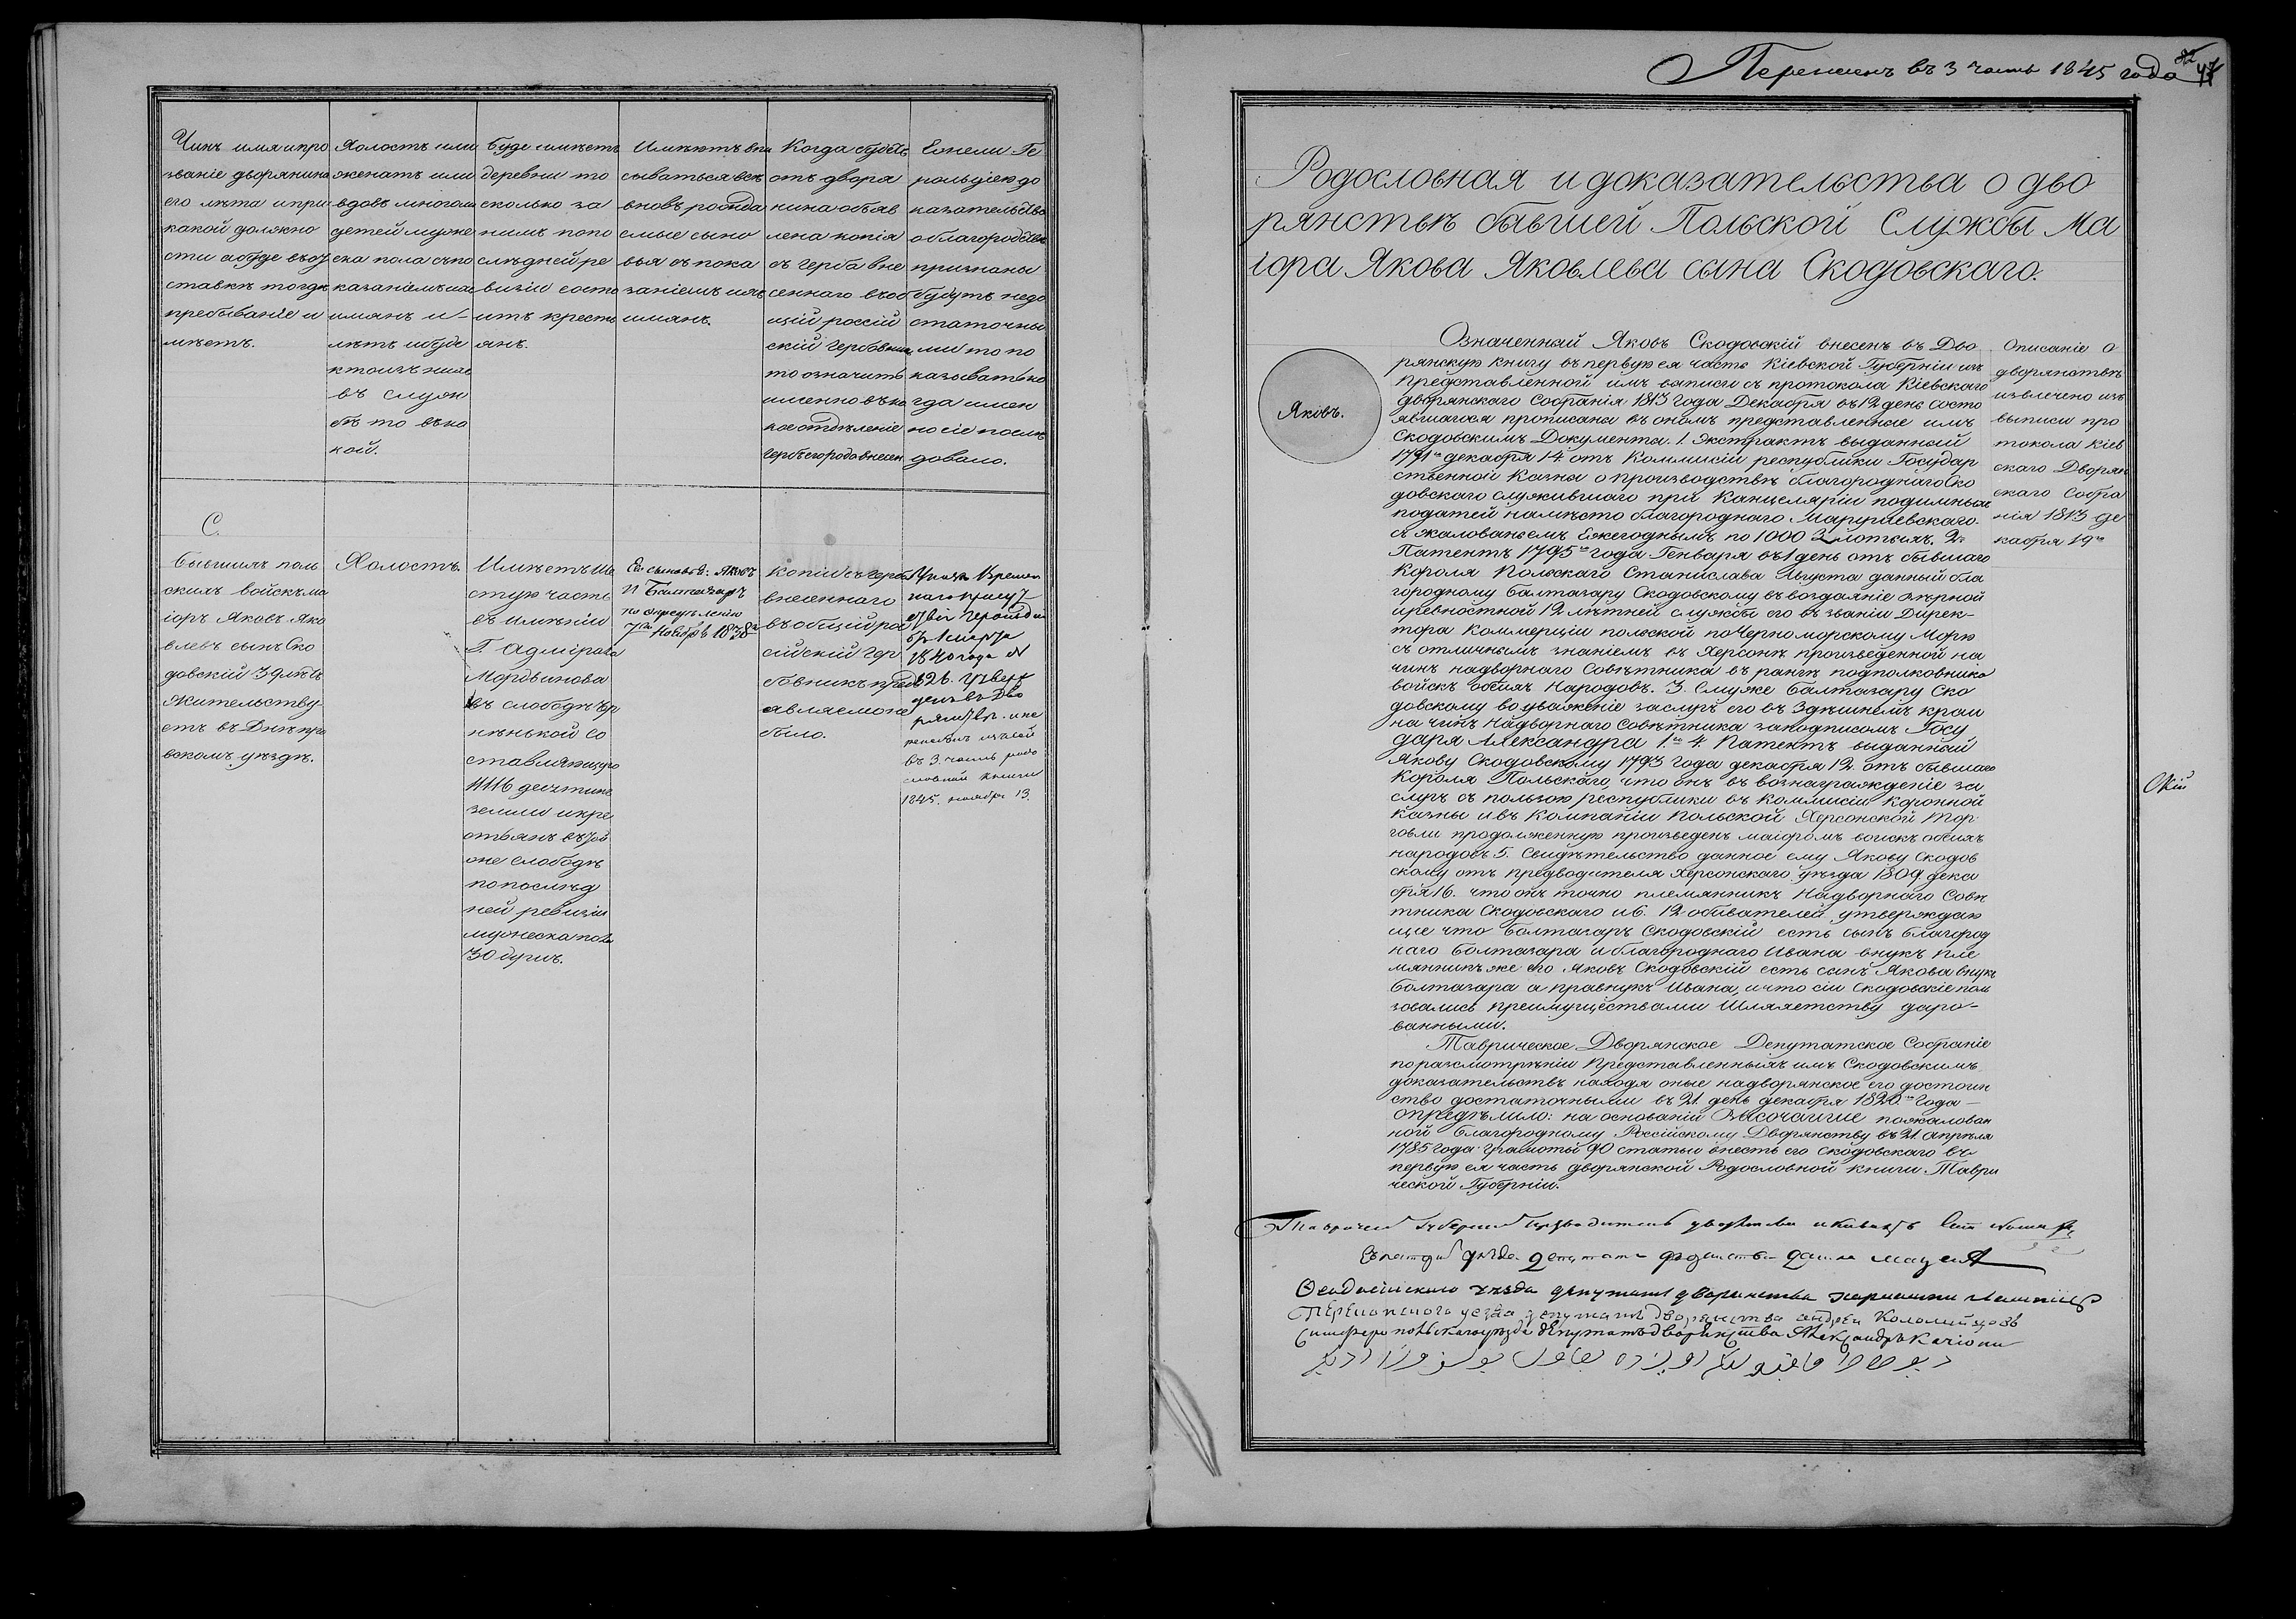 Чинъ имя и про
званіе дворянина
его лѣта и при
какой должно
сти а буде въ от
ставкѣ то гдѣ
пребываніе и
мѣетъ.
Холостъ или
женатъ или
вдовъ многоли
детей муже
ска пола съ по
казаніемъ ихъ
имянъ и
лѣтъ и буде
кто изъ нихъ
въ служ
бѣ то въ ка
кой.
Буде имѣетъ
деревни то
сколько за
нимъ по по
слѣдней ре
визіи состо
итъ кресть
янъ.
Имѣютъ впи
сываться всѣ
вновь рожда
емые сыно
вья съ пока
заніемъ ихъ
имянъ.
Когда будетъ
отъ дворя
нина объяв
лена копія
съ герба вне
сеннаго въ об
щій россій
скій гербовникъ
то означить
именно въ ка
кое отдѣленіе
гербъ его рода внесен
Ежели Ге
рольдіею до
казательства
о благородствѣ
признаны
будутъ недо
статочны
ми то по
казывать ко
гда имен
но сіе послѣ
довало.
С.
Бывшихъ поль
скихъ войскъ ма
іоръ Яковъ Яко
влевъ сынъ Ско
довскій 39 лѣтъ
жительству
етъ въ Днѣпро
вскомъ уѣздѣ.
Холостъ.
Имѣетъ
стую часть
въ имѣніи
Г. Адмирала
Мордвинова
въ слободѣ Чер
нѣнькой со
ставляющую
11116 десятинъ
земли и кре
стьянъ въ той
оне слободѣ
по послѣд
ней ревизіи
мужеска пола
30 душъ.
Ег. сыновья: Яковъ
и Балтазаръ
по опредѣленію
7го Ноября 1838
Копіи съ герба
внесеннаго
въ общій рос
сійскій гер
бовникъ пред
являемо не
было.
Указъ Времен
наго
Герольдіи
1 марта
1840 года №
826. утверж
денъ въ Дво
рянствѣ
въ 3 часть родо
словной книги
1845. ноября 13.
Перенесенъ въ 3 часть 1845 года
82
47
Родословная и доказательства о дво
рянствѣ бывшей Польской Службы Ма
іора Якова Яковлева сына Скодовскаго.
Яковъ.
Означенный Яковъ Скодовскій внесенъ въ Дво
рянскую книгу въ первую ея часть Кіевской Губерніи изъ
представленной имъ выписи съ протокола Кіевскаго
дворянскаго Собранія 1813 года Декабря въ 12 день состо
явшагося прописаны въ ономъ представленные имъ
Скодовскимъ Документы. 1. Экстрактъ выданный
1791го декабря 14 отъ Коммисіи республики Государ
ственной Казны о производствѣ благороднаго Ско
довскаго служившаго при Канцеляріи подимныхъ
податей на мѣсто благороднаго Марушевскаго
съ жалованьемъ Ежегоднымъ по 1000 Злотыхъ. 2.
Патентъ 1795го года Генваря въ 1 день отъ бывшаго
Короля Польскаго Станислава Августа данный бла
городному Балтазару Скодовскому въ воздаяніе вѣрной
и ревностной 12 лѣтней службы его въ званіи Дирек-
тора Коммерціи польской по Черноморскому Морю
съ отличнымъ знаніемъ въ Херсонѣ произведенной на
чинъ надворнаго Совѣтника въ рангѣ подполковника
войскъ обоихъ Народовъ. 3. Ему же Балтазару Ско
довскому во уваженіе заслугъ его въ Здѣшнемъ краи
на чинъ Надворнаго Совѣтника за подписомъ Госу
даря Александра 1го 4. Патентъ выданный
Якову Скодовскому 1793 года декабря 12. отъ бывшаго
Короля Польскаго, что онъ въ вознагражденіе за
слугъ съ пользою республики въ Коммисіи Коронной
Казны и въ Компаніи Польской Херсонской Тор
говли продолженную произведенъ маіоромъ войскъ обоихъ
народовъ 5. Свидѣтельство данное ему Якову Скодов
скому отъ предводителя Херсонскаго уѣзда 1809. дека
бря 16. что онъ точно племянникъ Надворнаго Совѣ
тника Скодовскаго и 6. 12 обывателей утверждаю
щіе что Балтазаръ Скодовскій есть сынъ благород
наго Болтазара и благороднаго Ивана внукъ пле
мянникъ же его Яковъ Скодовскій есть сынъ Якова внукъ
Болтазара а правнукъ Ивана, и что сіи Скодовскіе поль
зовались преимуществами Шляхетству даро-
ванными.
Таврическое Дворянское Депутатское Собраніе
по разсмотрѣніи представленныхъ имъ Скодовскимъ
доказательствъ находя оные на дворянское его достоин
ство достаточными въ 21 день декабря 1820го Года
опредѣлило: на основаніи Высочайше пожалован
ной благородному Россійскому Дворянству въ 21 апрѣля
1785 года грамоты 90 статьи внесть его Скодовскаго въ
первую ея часть дворянской Родословной книги Таври
ческой Губерніи.
Описаніе о
дворянствѣ
извлечено изъ
выписи про
токола Кіев
скаго Дворян
скаго Собра
нія 1813 де
кабря 19го
Ѳеодосійскаго уѣзда депутатъ дворянства
Перекопскаго уезда депутатъ дворянства Андрей Коломийцовъ
Симферопольскаго уѣзда депутатъ дворянства Александръ Качіони